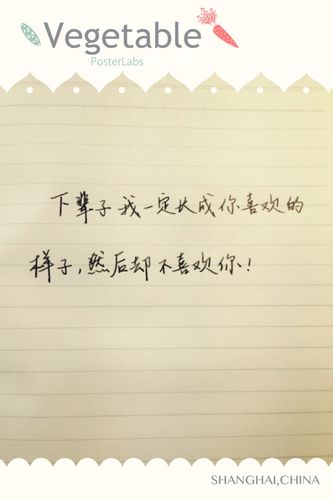 Vegetable
PosterLabs
下辈子我一定长成你喜欢的
样子,然后却不喜欢你!
SHANGHAI,CHINA